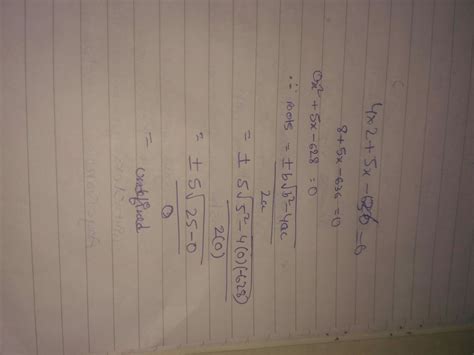 4x2 + 5x - 636 = 0
8 + 5x - 636 = 0
0x² + 5x - 628 = 0
∴ roots = ± b√b² - 4ac / 2a
= ± 5√5² - 4(0)(-628) / 2(0)
= ± 5√25 - 0 / 0
= undefined